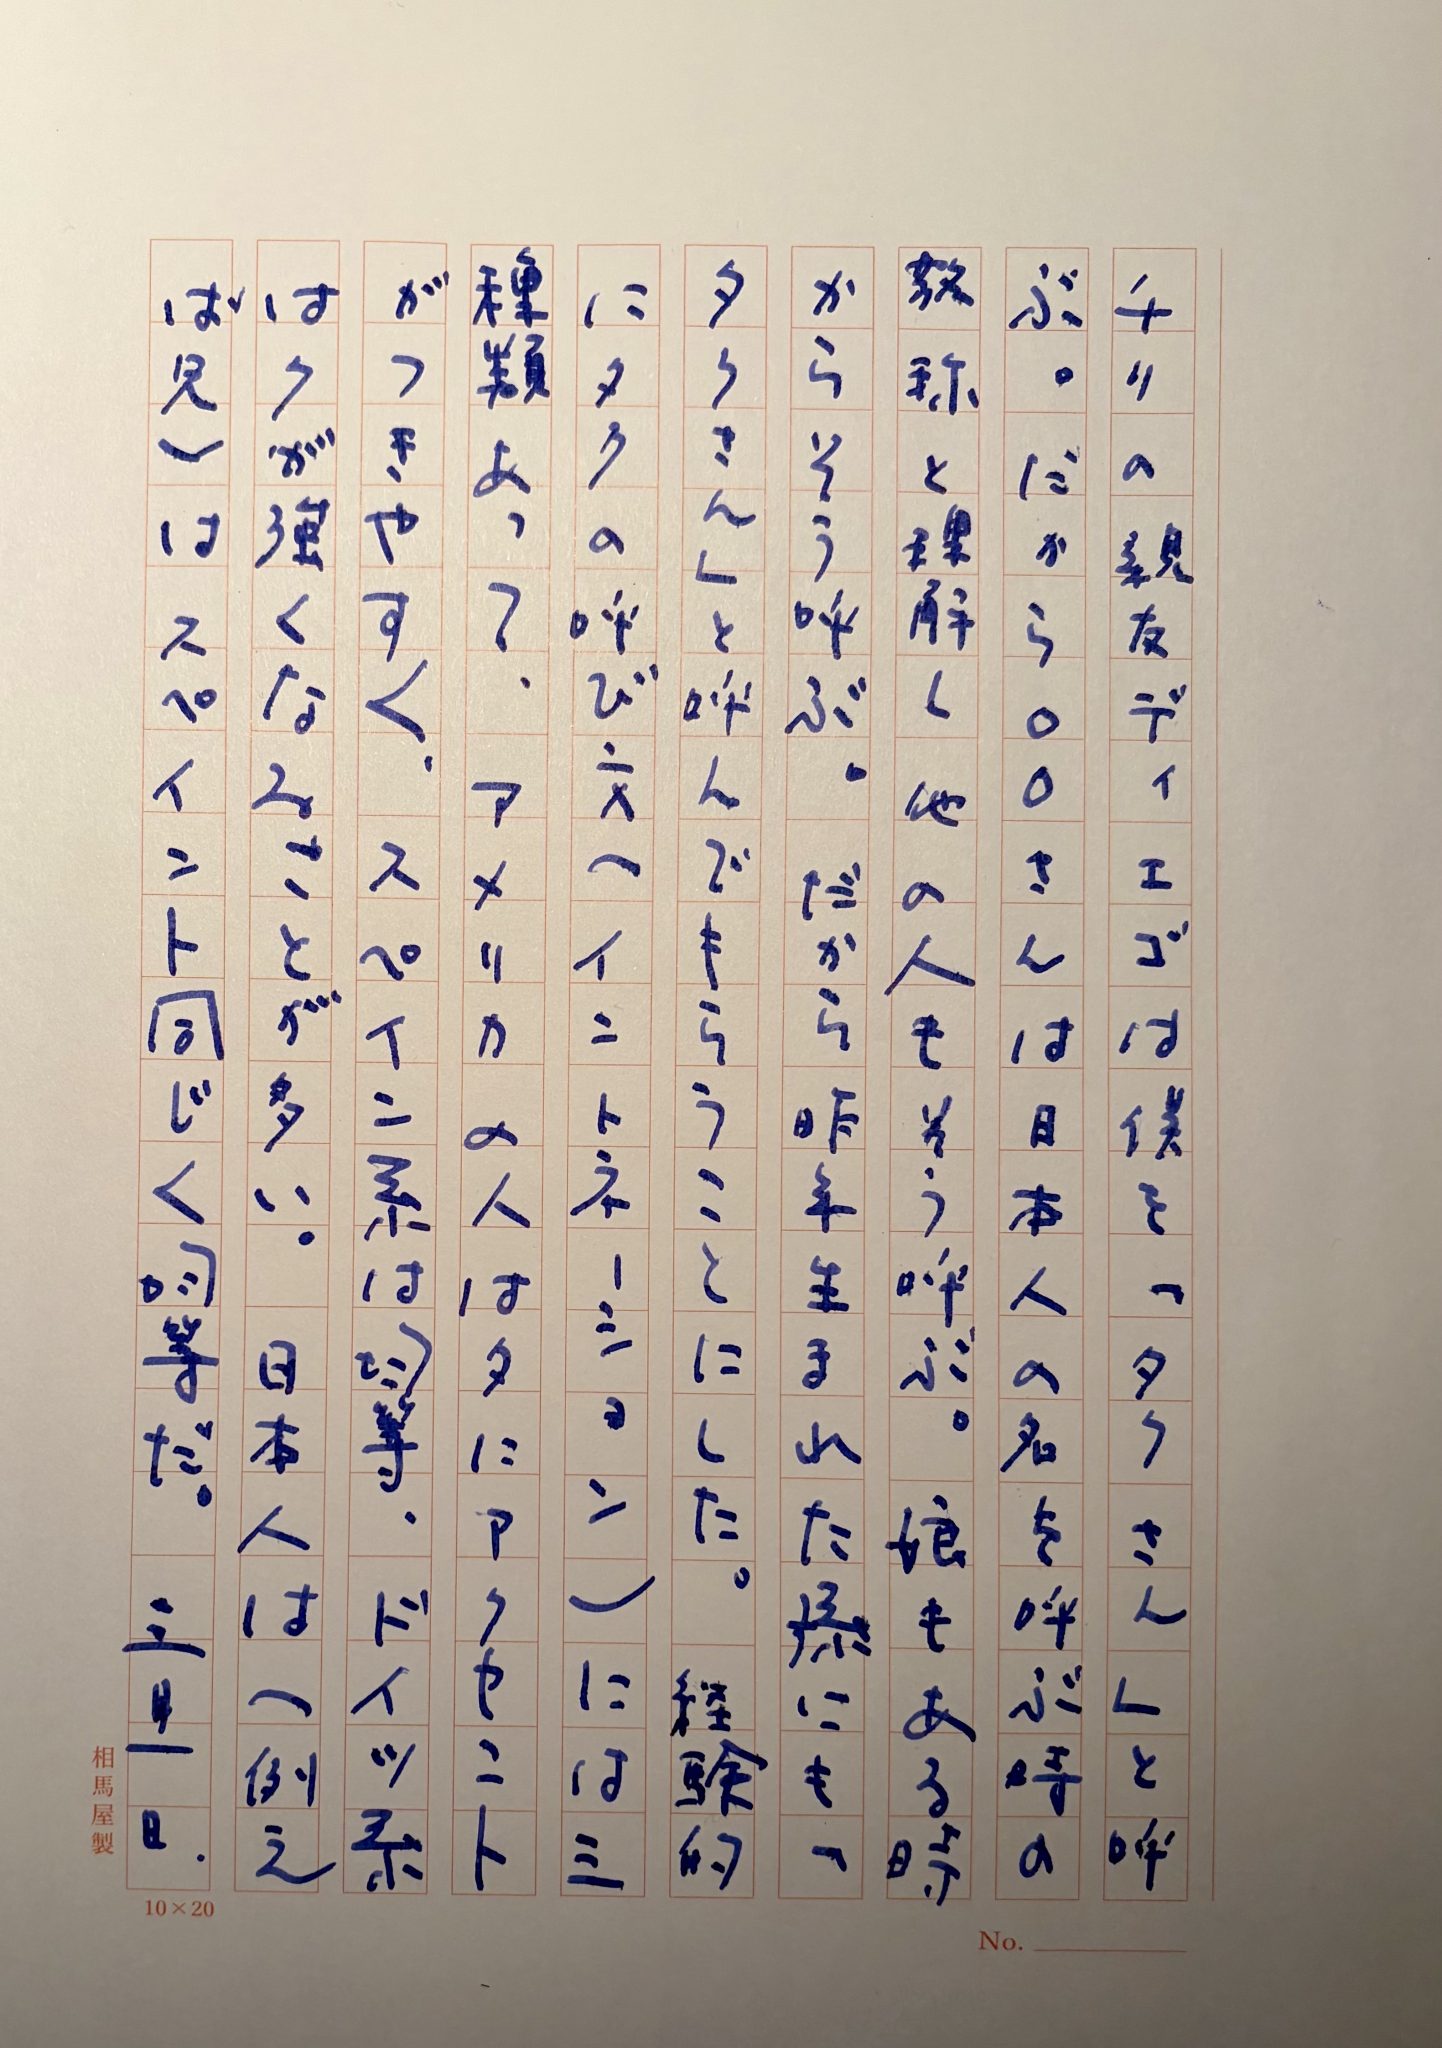 チリの親友ディエゴは僕を「タクさん」と呼
ぶ。だから〇〇さんは日本人の名を呼ぶ時の
敬称と理解し他の人もそう呼ぶ。娘もある時
からそう呼ぶ。だから昨年生まれた孫にも「
タクさん」と呼んでもらうことにした。経験的
にタクの呼び方(イントネーション)には三
種類あって、アメリカの人はタにアクやコト
がつきやすく、スペイン系は均等、ドイツ系
はクが強くなることが多い。日本人は(例え
ば児)はスペイント同じく均等だ。三月一日.
相馬屋製
10×20
No.